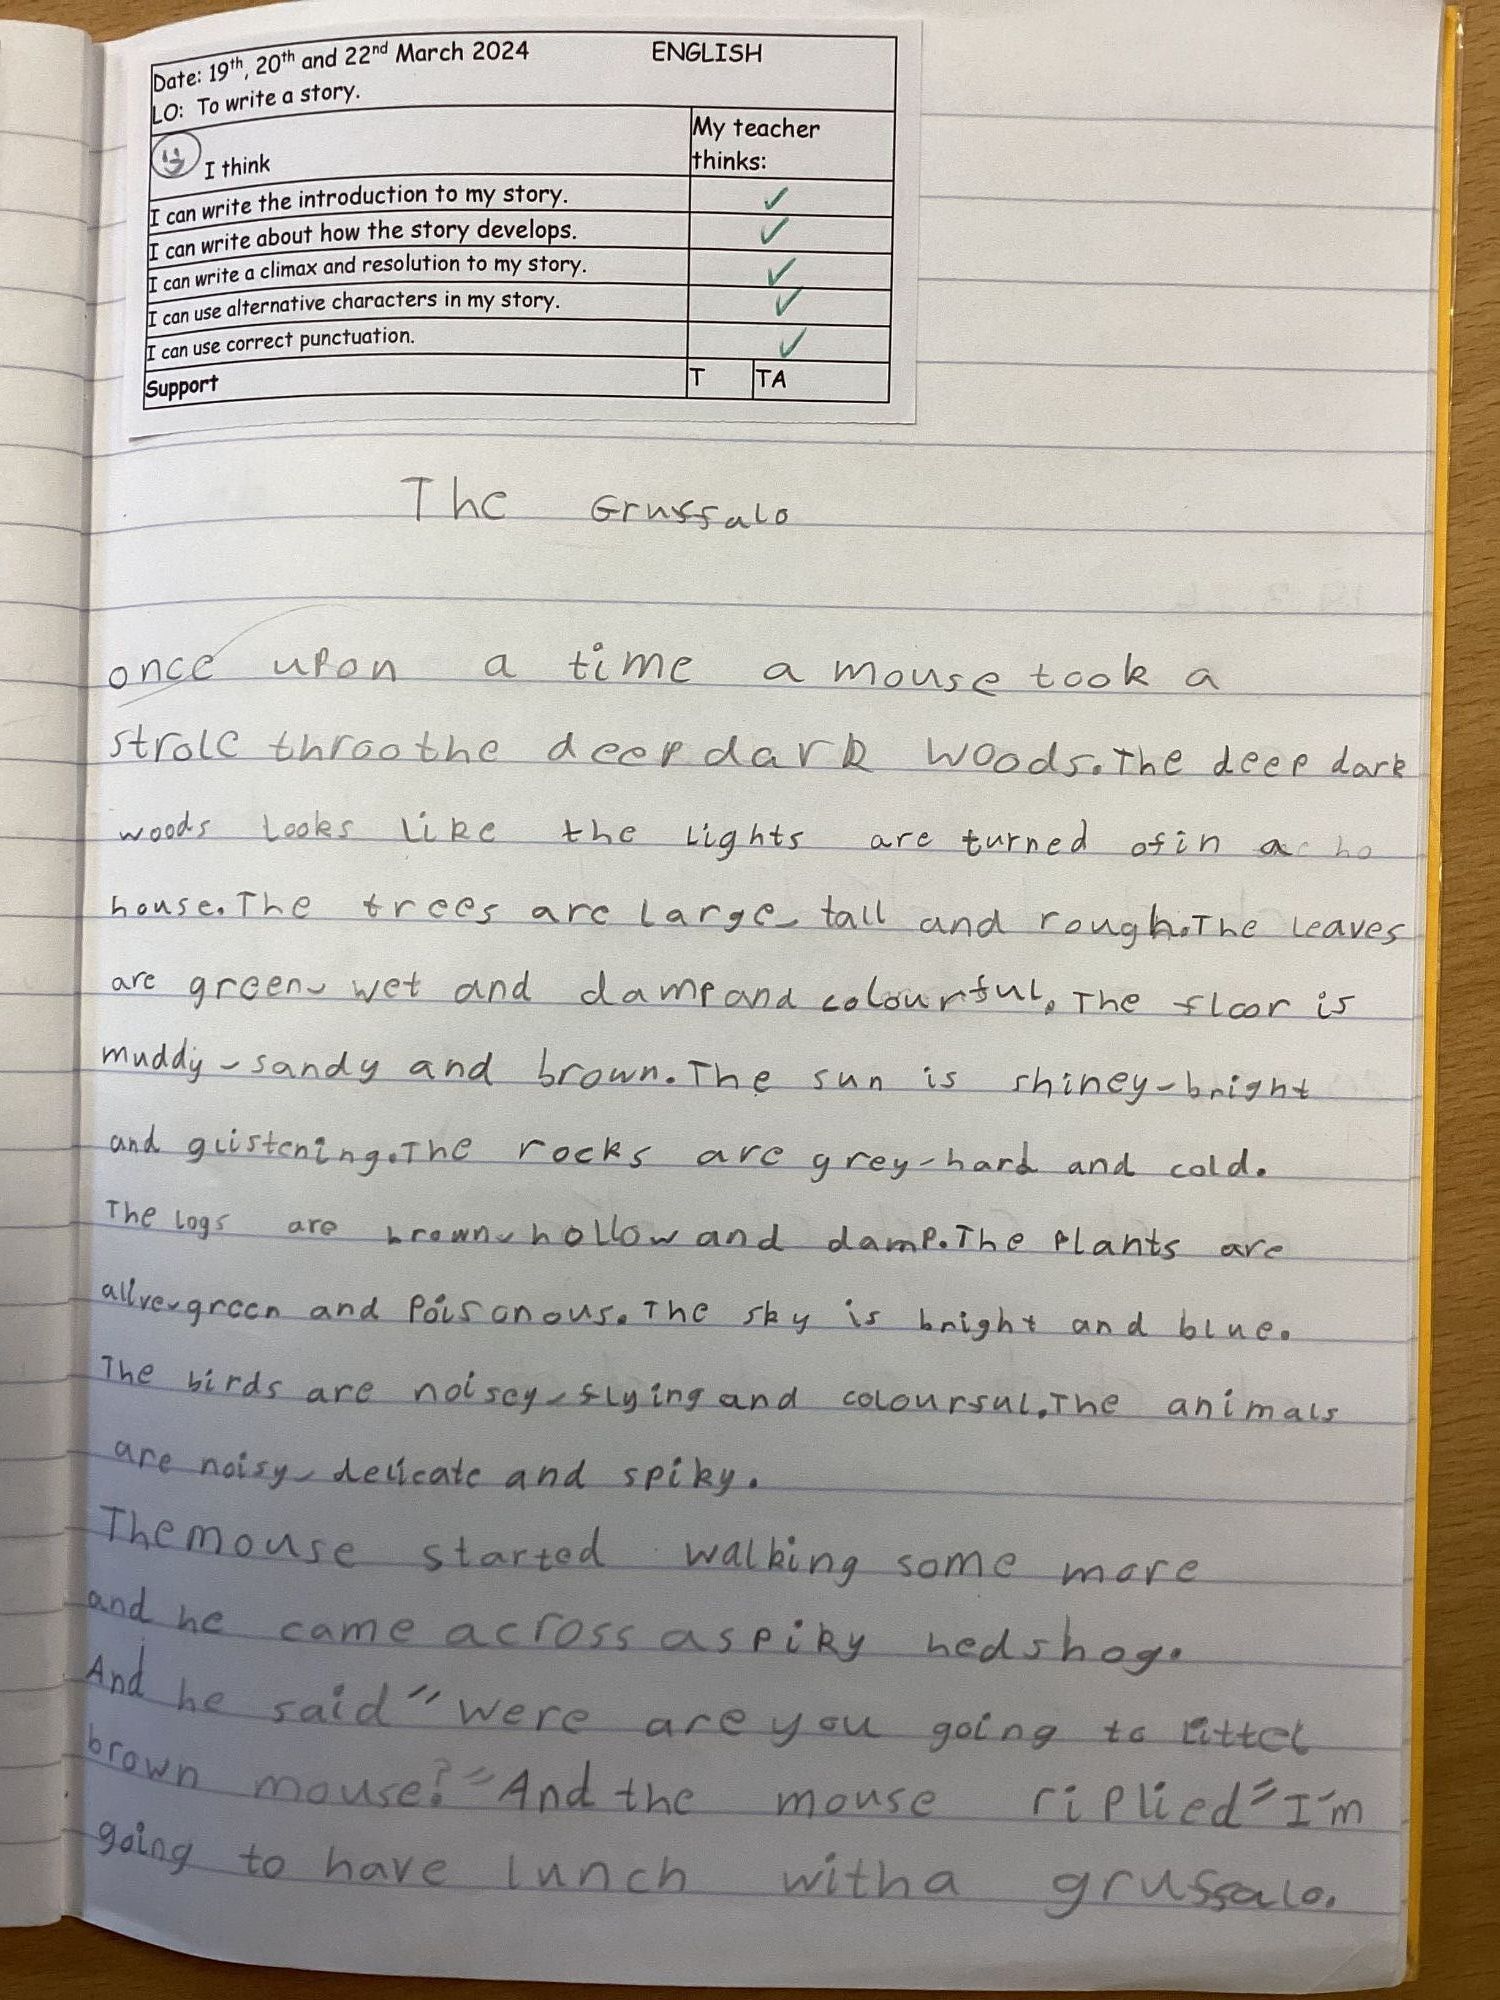 Date: 19th, 20th and 22nd March 2024 ENGLISH
LO: To write a story.
I think My teacher thinks:
I can write the introduction to my story. ✓
I can write about how the story develops. ✓
I can write a climax and resolution to my story. ✓
I can use alternative characters in my story. ✓
I can use correct punctuation. ✓
Support T TA
The Gruffalo
once upon a time a mouse took a
strole throo the deep dark woods. The deep dark
woods looks like the lights are turned of in a ho
house. The trees are large, tall and rough. The leaves
are green, wet and damp and colourful. The floor is
muddy, sandy and brown. The sun is shiney, bright
and glistening. The rocks are grey, hard and cold.
The logs are brown, hollow and damp. The plants are
alive, green and poisonous. The sky is bright and blue.
The birds are noisey, flying and colourful. The animals
are noisy, delicate and spiky.
The mouse started walking some more
and he came across a spiky hedshog.
And he said "were are you going to littel
brown mouse?" And the mouse riplied "I'm
going to have lunch with a gruffalo.